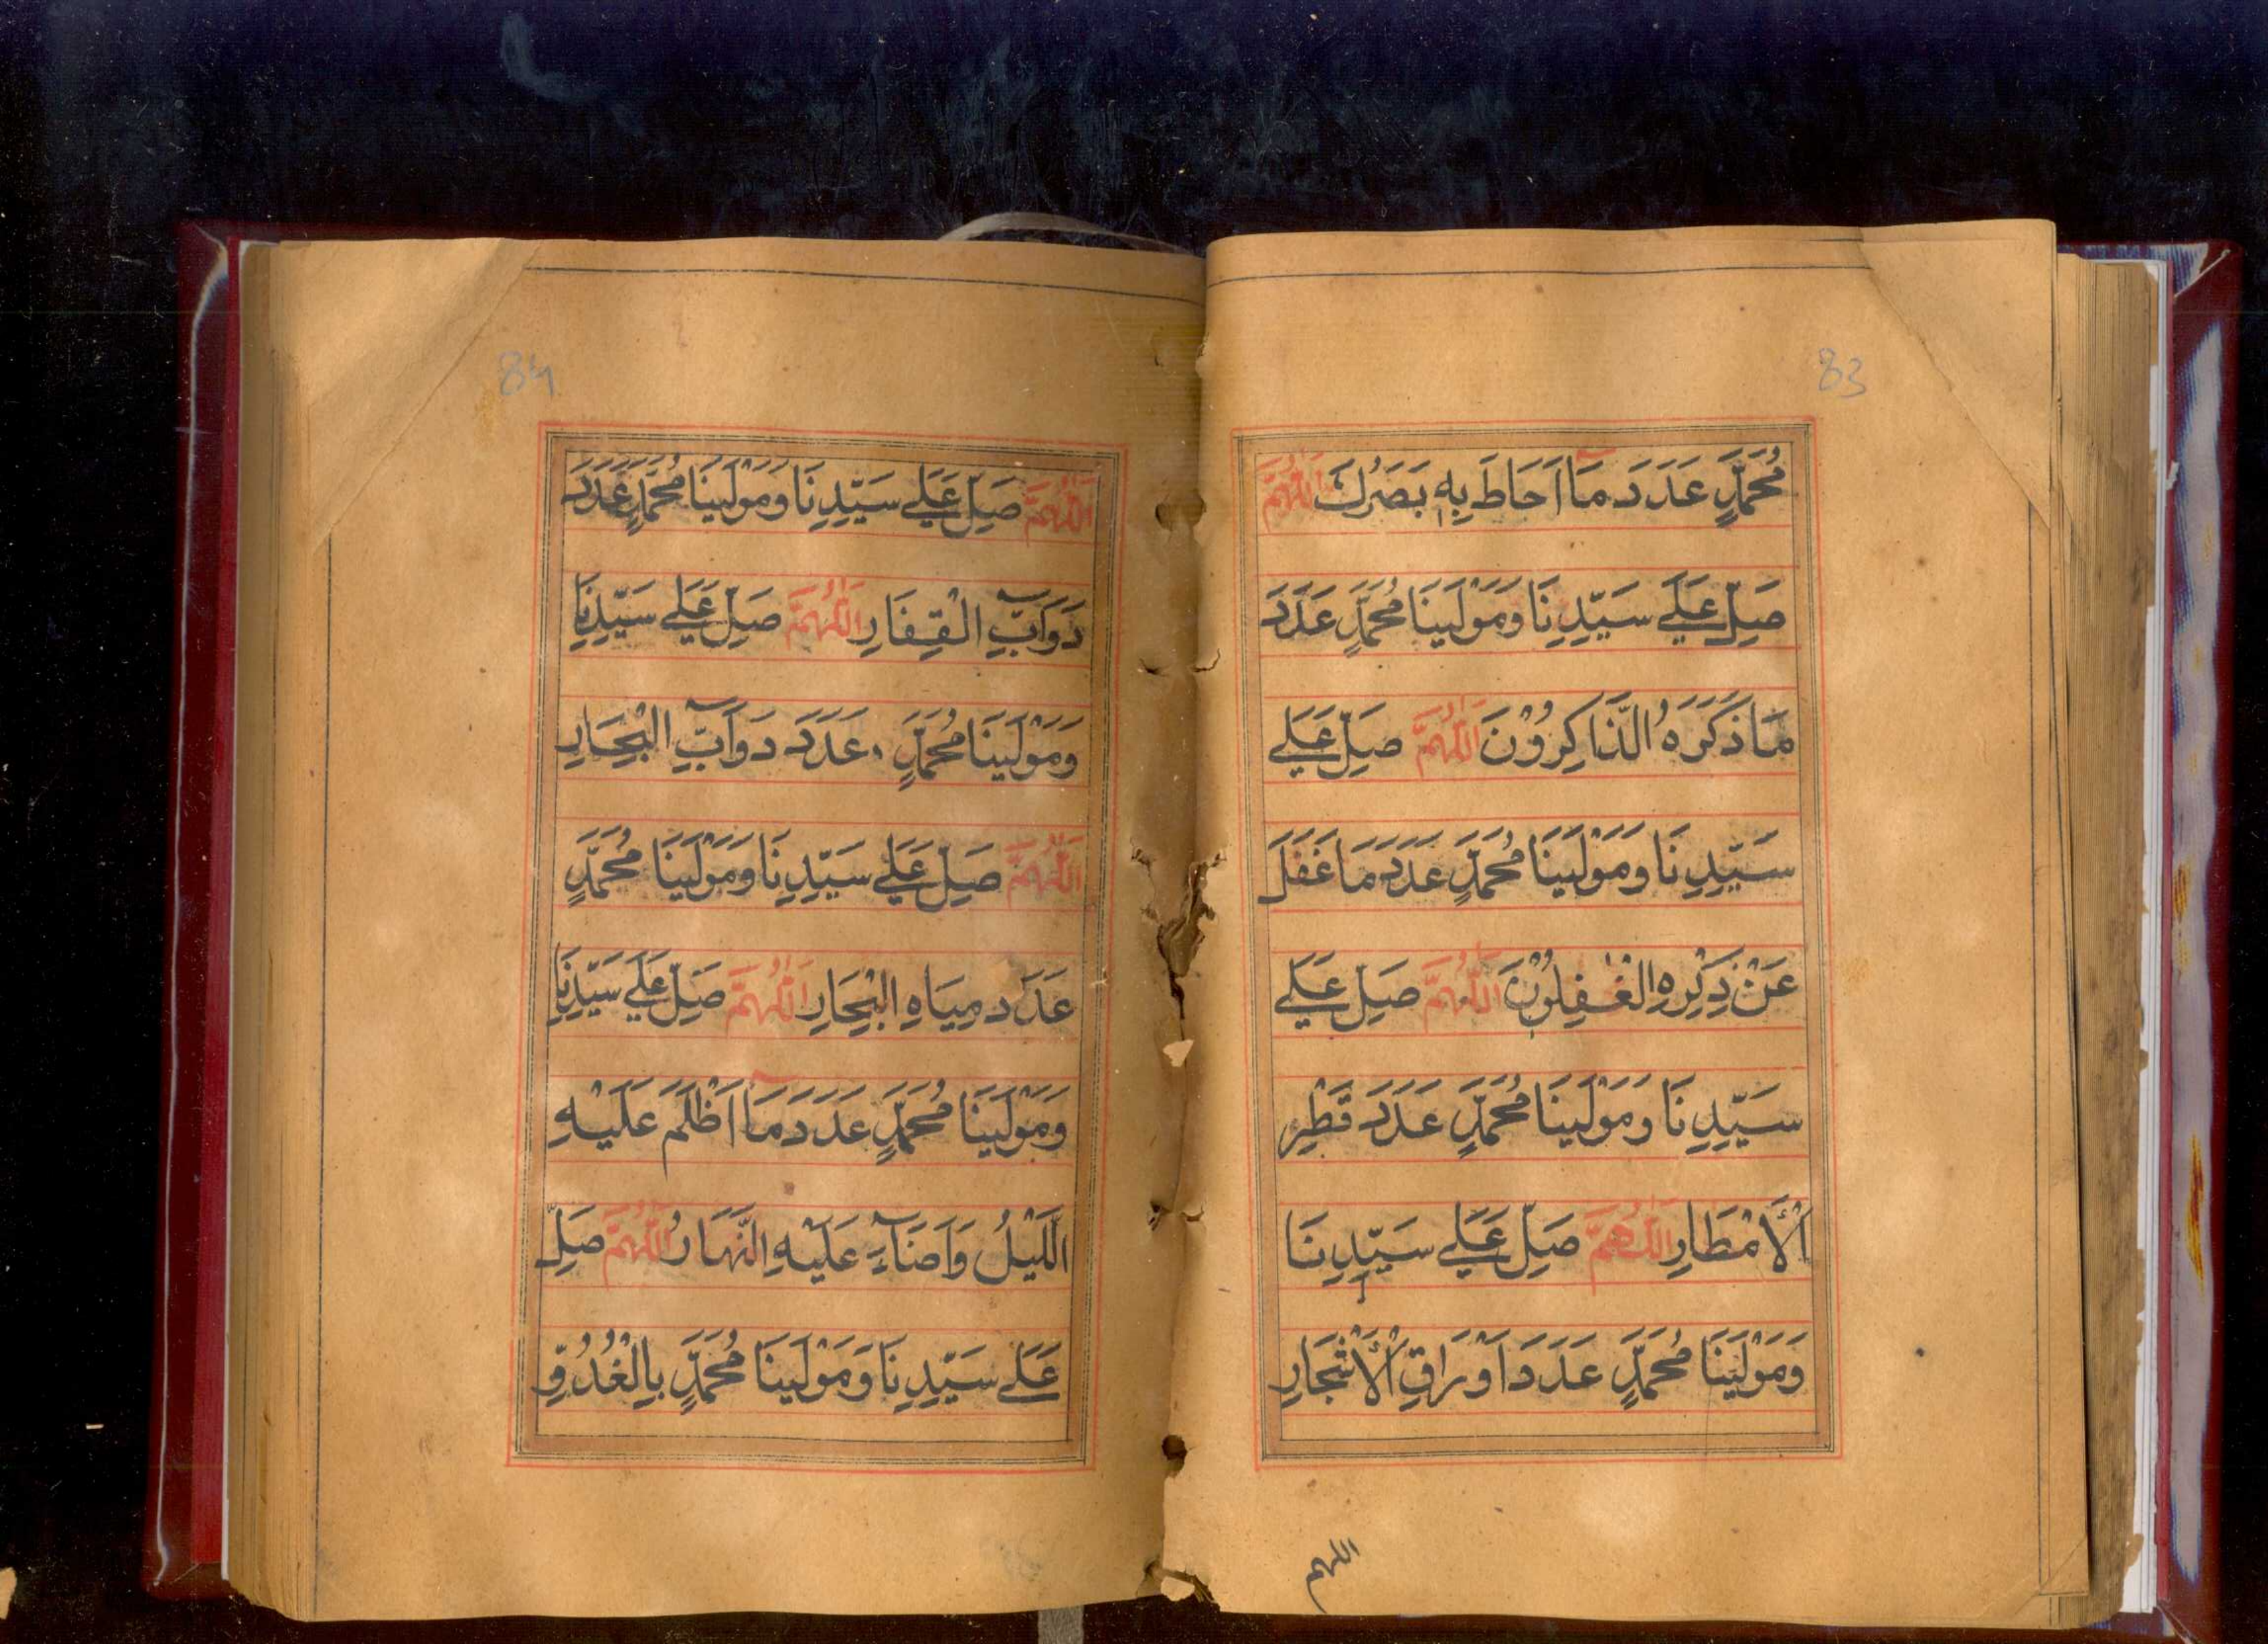 83
مُحَمَّدٍ عَدَدَ مَآ اَحَاطَ بِهٖ بَصَرُكَ اَللّٰهُمَّ
صَلِّ عَلٰے سَيِّدِنَا وَمَوْلٰينَا مُحَمَّدٍ عَدَدَ
مَا ذَكَرَهُ الذَّاكِرُوْنَ اَللّٰهُمَّ صَلِّ عَلٰے
سَيِّدِنَا وَمَوْلٰينَا مُحَمَّدٍ عَدَدَ مَا غَفَلَ
عَنْ ذِكْرِهِ الْغٰفِلُوْنَ اَللّٰهُمَّ صَلِّ عَلٰے
سَيِّدِنَا وَمَوْلٰينَا مُحَمَّدٍ عَدَدَ قَطْرِ
الْاَمْطَارِ اَللّٰهُمَّ صَلِّ عَلٰے سَيِّدِنَا
وَمَوْلٰينَا مُحَمَّدٍ عَدَدَ اَوْرَاقِ الْاَشْجَارِ
اللهم
84
اَللّٰهُمَّ صَلِّ عَلٰے سَيِّدِنَا وَمَوْلٰينَا مُحَمَّدٍ عَدَدَ
دَوَآبِّ الْقِفَارِ اَللّٰهُمَّ صَلِّ عَلٰے سَيِّدِنَا
وَمَوْلٰينَا مُحَمَّدٍ عَدَدَ دَوَآبِّ الْبِحَارِ
اَللّٰهُمَّ صَلِّ عَلٰے سَيِّدِنَا وَمَوْلٰينَا مُحَمَّدٍ
عَدَدَ مِيَاهِ الْبِحَارِ اَللّٰهُمَّ صَلِّ عَلٰے سَيِّدِنَا
وَمَوْلٰينَا مُحَمَّدٍ عَدَدَ مَآ اَظْلَمَ عَلَيْهِ
الَّيْلُ وَاَضَآءَ عَلَيْهِ النَّهَارُ اَللّٰهُمَّ صَلِّ
عَلٰے سَيِّدِنَا وَمَوْلٰينَا مُحَمَّدٍ بِالْغُدُوِّ